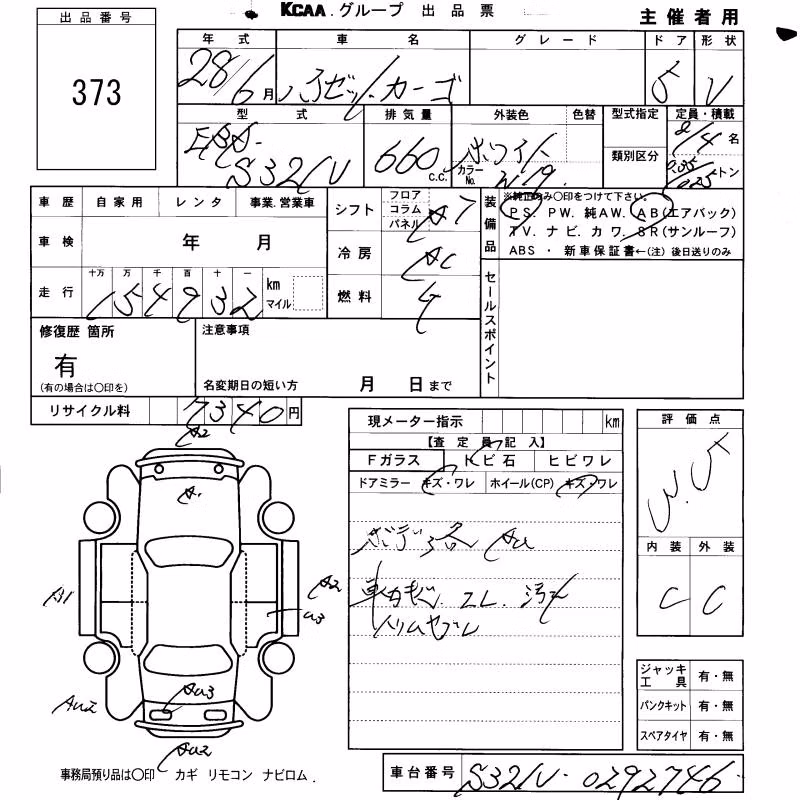 KCAA.グループ 出品票
主催者用
出品番号
373
年式 車名 グレード ドア 形状
28/6月 ハイゼットカーゴ 5 V
型式 排気量 外装色 色替 型式指定 定員・積載
EBD- S321V 660 C.C. ホワイト カラーNo. W19. 類別区分 2/4名 トン
車歴 自家用 レンタ 事業.営業車
シフト フロア コラム パネル AT
装備品 ※純正のみ○印をつけて下さい。
PS. PW. 純AW. AB(エアバック)
TV. ナビ. カワ. SR(サンルーフ)
ABS ・ 新車保証書←(注) 後日送りのみ
車検 年 月
冷房 AC
走行 十万 万 千 百 十 一 km マイル
154932
燃料 G
セールスポイント
修復歴 箇所
有
(有の場合は○印を)
注意事項
名変期日の短い方 月 日まで
リサイクル料 7340円
現メーター指示 km
【査定員記入】
Fガラス トビ石 ヒビワレ
ドアミラー キズ・ワレ ホイール(CP) キズ・ワレ
ボデー各 AU
車内キズ. コレ. 汚れ
評価点
内装 外装
C C
A2
A1
B1
A2
U3
AU3
AU2
AU2
ジャッキ 工具 有・無
パンクキット 有・無
スペアタイヤ 有・無
事務局預り品は○印 カギ リモコン ナビロム.
車台番号 S321V-0292746